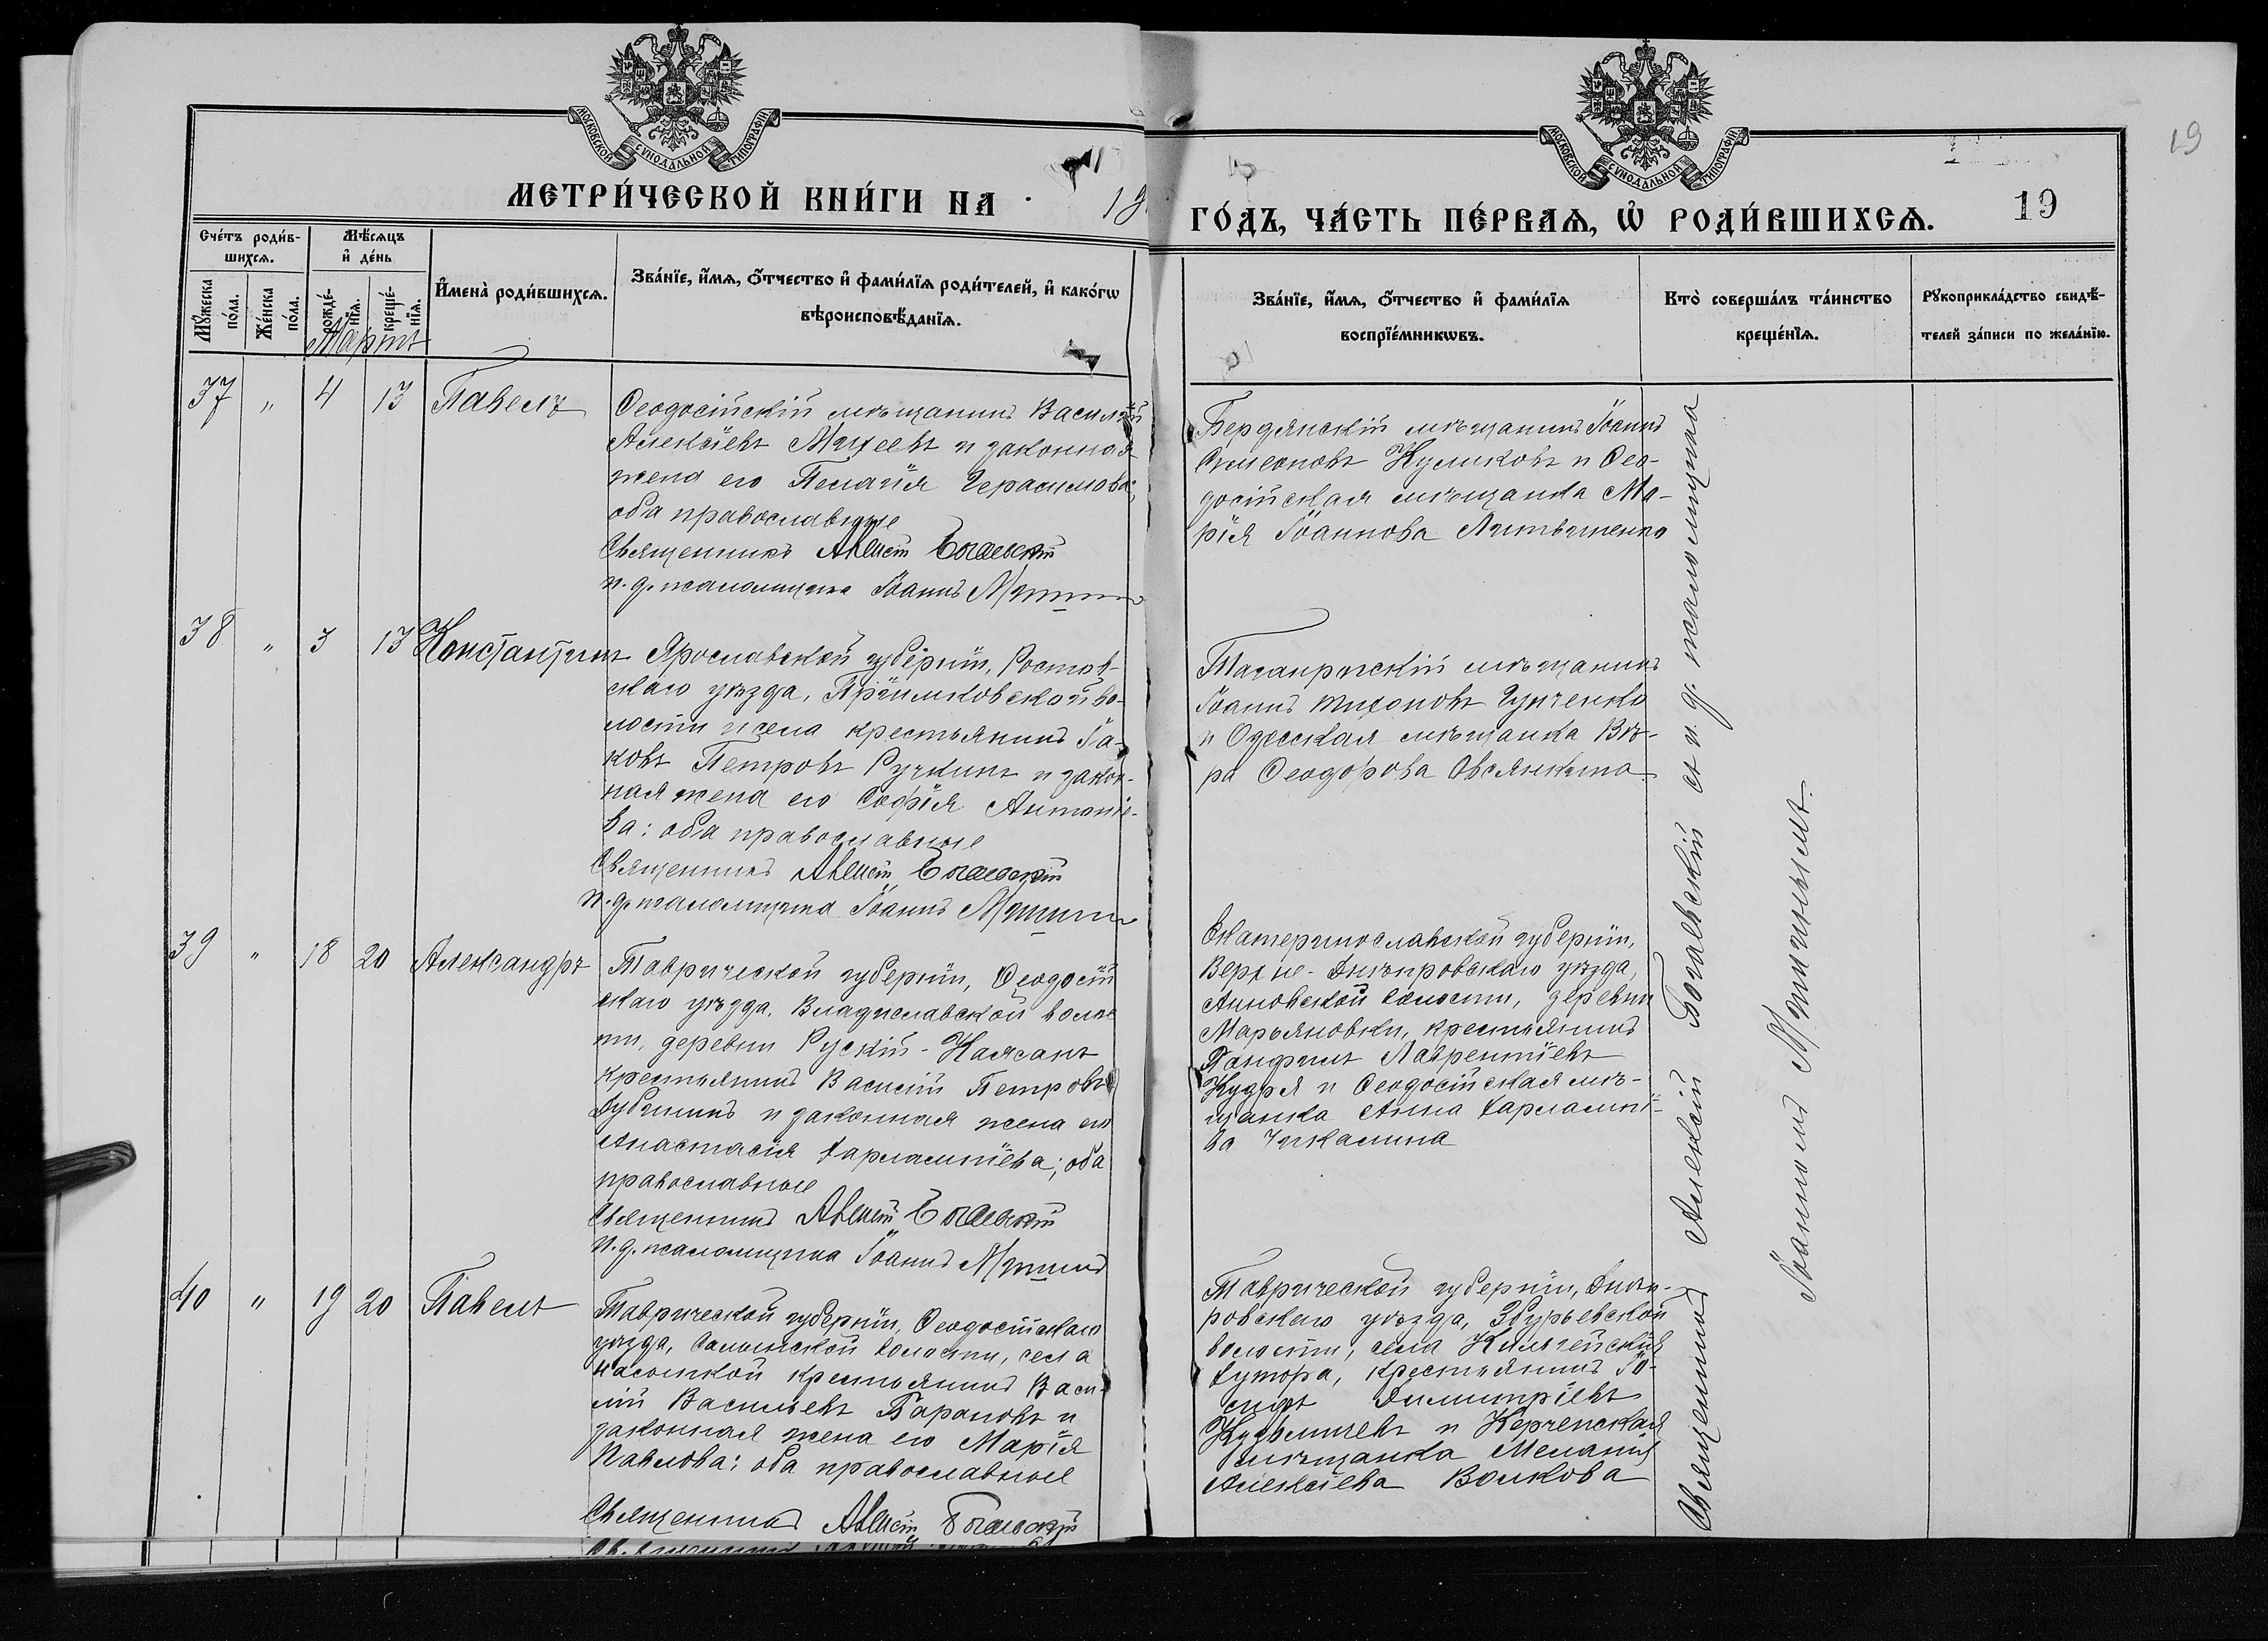 МОСКОВСКОЙ СѴНОДАЛЬНОЙ ТИПОГРАФІИ
МОСКОВСКОЙ СѴНОДАЛЬНОЙ ТИПОГРАФІИ
19
МЕТРИ́ЧЕСКОЙ КНИ́ГИ НА
ГО́ДЪ, ЧА́СТЬ ПЕ́РВАѦ, Ѿ РОДИ́ВШИХСѦ.
19
Сче́тъ роди́в-
шихсѧ.
Мѣ́сяцъ
и҆ де́нь
Мꙋ́жеска по́ла.
Же́нска по́ла.
рожде́-нїѧ.
креще́-нїѧ.
Мартъ
И҆мена̀ роди́вшихсѧ.
Зва́нїе, и҆́мѧ, о҆́тчество и҆ фами́лїѧ роди́телей, и҆ како́гѡ
вѣроисповѣ́данїѧ.
Зва́нїе, и҆́мѧ, о҆́тчество и҆ фами́лїѧ
воспрїе́мникѡвъ.
Кто̀ соверша́лъ та́инство
креще́нїѧ.
Рꙋкоприкла́дство свидѣ́-
телей за́писи по жела́нїю.
37 " 4 13 Павелъ
Ѳеодосійскій мѣщанинъ Василій
Алексѣевъ Михеевъ и законная
жена его Пелагія Герасимова,
оба православные
Священникъ Алексій Богаевскій
и. д. псаломщика Іоаннъ
Бердянскій мѣщанинъ Іоаннъ
Симеоновъ Куликовъ и Ѳео-
досійская мѣщанка Ма-
рія Іоаннова Литвиненко
38 " 3 13 Константинъ
Ярославской губерніи, Ростов-
скаго уѣзда, Пріимковской во-
лости и села крестьянинъ Іа-
ковъ Петровъ Ручкинъ и закон-
ная жена его Софія Антоніе-
ва: оба православные
Священникъ Алексій Богаевскій
и. д. псаломщика Іоаннъ
Таганрогскій мѣщанинъ
Іоаннъ Тихоновъ
и Одесская мѣщанка Вѣ-
ра Ѳеодорова Овсянкина
39 " 18 20 Александръ
Таврической губерніи, Ѳеодосій
скаго уѣзда, Владиславской волос
ти, деревни Рускій-Каясанъ
крестьянинъ Василій Петровъ
Дубининъ и законная жена его
Анастасія Харлампіева; оба
православные
Священникъ Алексій Богаевскій
и. д. псаломщика Іоаннъ
Екатеринославской губерніи,
Верхне-Днѣпровскаго уѣзда,
Анновской волости, деревни
Марьяновки, крестьянинъ
Панфилъ Лаврентіевъ
Кудря и Ѳеодосійская мѣ-
щанка Анна Харлампі-
ва Чикалина
40 " 19 20 Павелъ
Таврической губерніи, Ѳеодосійскаго
уѣзда, Салынской волости, села
Насыпкой крестьянинъ Васи-
лій Васильевъ Барановъ и
законная жена его Марія
Павлова: оба православные
Священникъ Алексій Богаевскій
Таврической губерніи, Днѣп-
ровскаго уѣзда, Збурьевской
волости, села
хутора, крестьянинъ Іо-
сифъ Димитріевъ
и Керченская
мѣщанка Меланія
Алексіева Волкова
Священникъ Алексій Богаевскій съ и. д. псаломщика
Іоанномъ